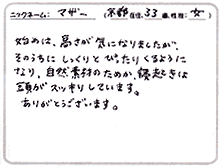 ニックネーム： マザー （京都 在住、53 歳、性別： 女 ）
始めは、高さが気になりましたが、
そのうちに しっくりと ぴったりくるように
なり、自然素材のためか、寝起きは
頭がスッキリしています。
ありがとうございます。